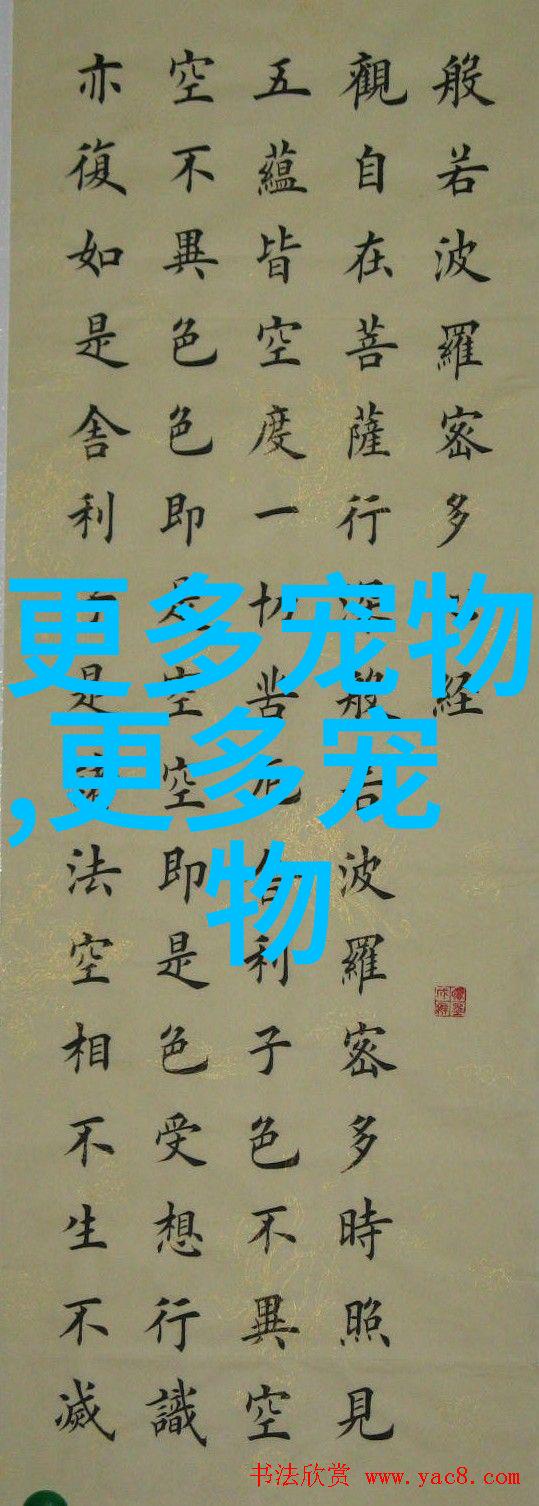 般若波羅密多心経
觀自在菩薩行深般若波羅密多時照見
五蘊皆空度一切苦厄舍利子色不異空
空不異色色即是空空即是色受想行識
亦復如是舍利子是諸法空相不生不滅
更多宠物
,更多宠
物
书法欣赏 www.yac8.com